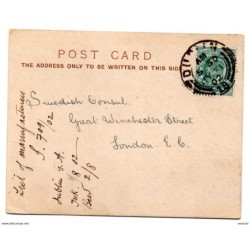 POST CARD
THE ADDRESS ONLY TO BE WRITTEN ON THIS SIDE
Swedish Consul
Great Winchester Street
London. E.C.
List of manufacturers
S. 709/02
Dublin
8 02
2/8